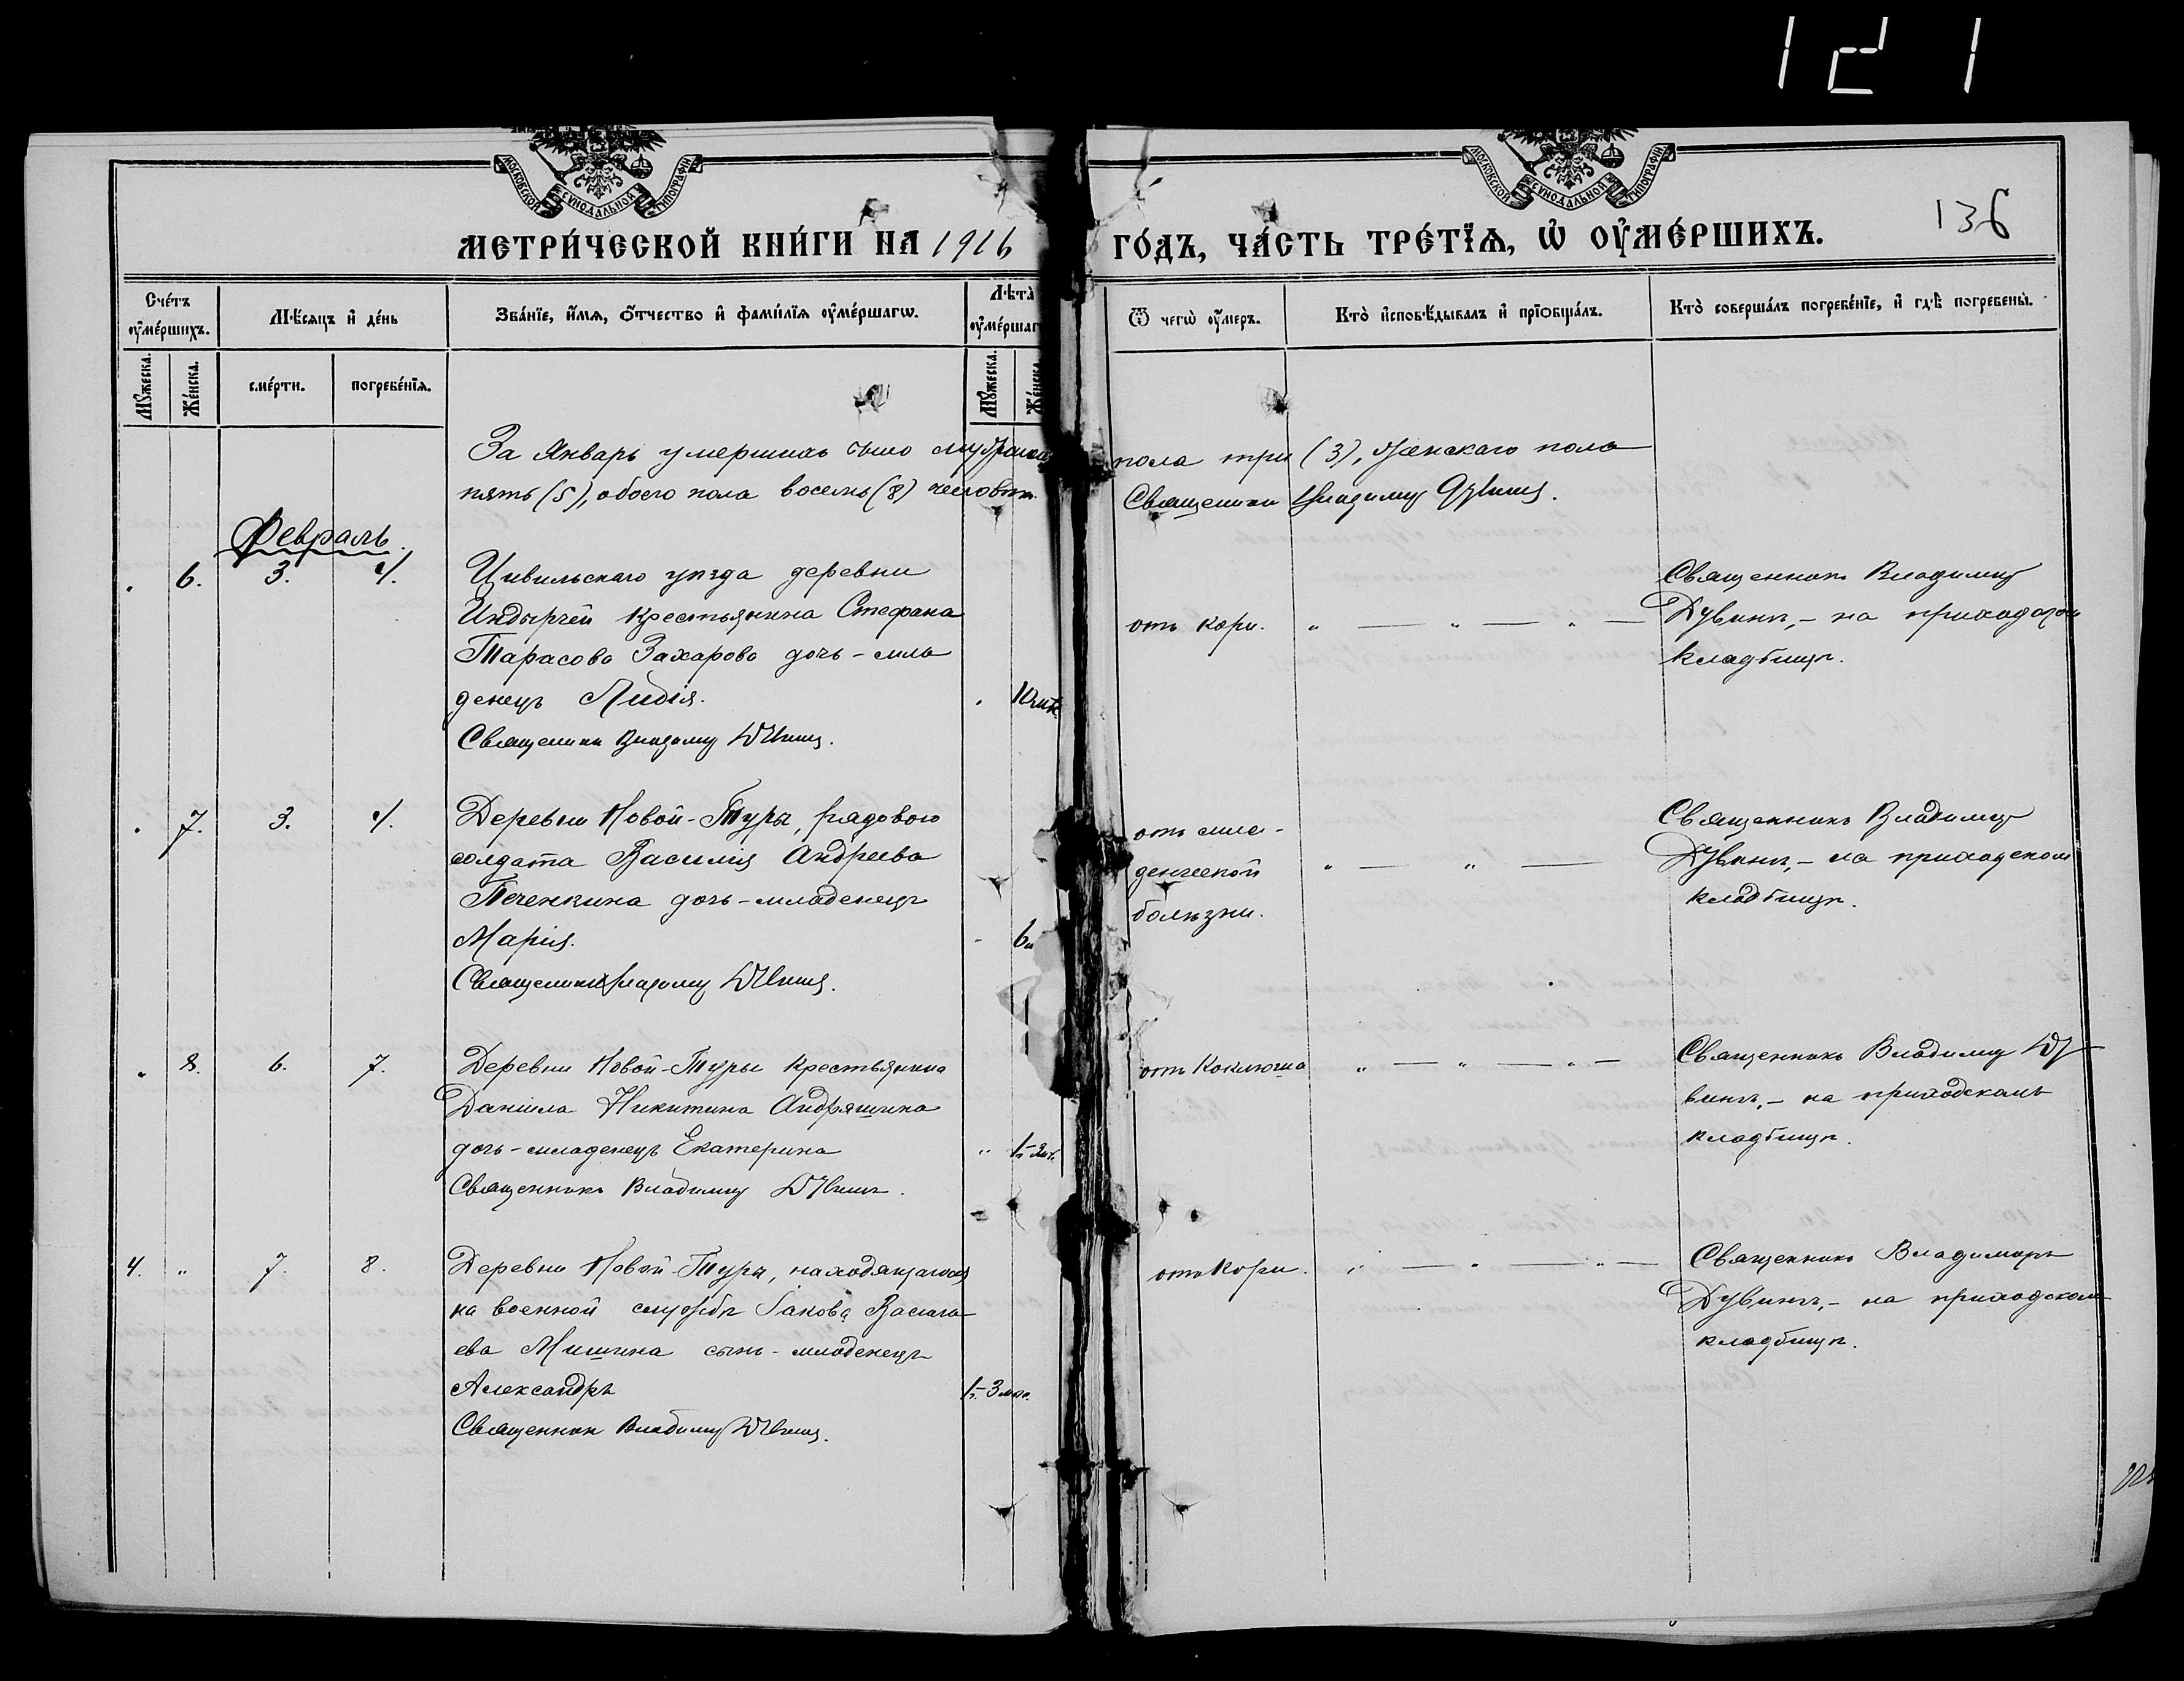 121
МОСКОВСКОЙ СѴНОДАЛЬНОЙ ТИПОГРАФІИ
МОСКОВСКОЙ СѴНОДАЛЬНОЙ ТИПОГРАФІИ
136
МЕТРИ́ЧЕСКОЙ КНИ́ГИ НА 1916 ГО́ДЪ, ЧА́СТЬ ТРЕ́ТЇѦ, Ѡ҆ ОУ҆МЕ́РШИХЪ.
Сче́тъ оу҆ме́ршихъ.
Мѣ́сяцъ и҆ де́нь
Зва́нїе, и҆́мя, ѻ҆́тчество и҆ фами́лїя оу҆ме́ршагѡ.
Лѣта̀ оу҆ме́ршаг
Ѿ чегѡ̀ оу҆́меръ.
Кто̀ и҆сповѣ́дывалъ и҆ прїѻбща́лъ.
Кто̀ соверша́лъ погребе́нїе, и҆ гдѣ̀ погребены̀.
Мꙋ́жеска.
Же́нска.
сме́рти.
погребе́нїя.
Мꙋ́жеска.
Же́нска
За Январь умершихъ было мужскаго пола три (3), женскаго пола
пять (5), обоего пола восемь (8) человѣкъ. Священникъ Владиміръ Дувинъ.
Февраль.
6. 3. 4.
Цивильскаго уѣзда деревни
Индырчей крестьянина Стефана
Тарасова Захарова дочь - мла
денецъ Лидія.
Священникъ Владиміръ Дувинъ.
отъ кори.
Священникъ Владиміръ
Дувинъ, - на приходском
кладбищѣ.
7. 3. 4.
Деревни Новой-Туры, рядового
солдата Василія Андреева
Печенкина дочь - младенецъ
Марія.
6
Священникъ Владиміръ Дувинъ.
отъ мла-
денческой
болѣзни.
Священникъ Владиміръ
Дувинъ, - на приходском
кладбищѣ.
8. 6. 7.
Деревни Новой-Туры крестьянина
Даніила Никитина Андряшина
дочь - младенецъ Екатерина
Священникъ Владиміръ Дувинъ.
отъ коклюша
Священникъ Владиміръ Ду
винъ, - на приходскомъ
кладбищѣ.
4. " 7. 8.
Деревни Новой-Туры, находящагося
на военной службѣ Іакова Василь
ева Мишина сынъ - младенецъ
Александръ
1 г. - 3 мѣс.
Священник Владиміръ Дувинъ.
отъ кори.
Священникъ Владимиръ
Дувинъ, - на приходском
кладбищѣ.